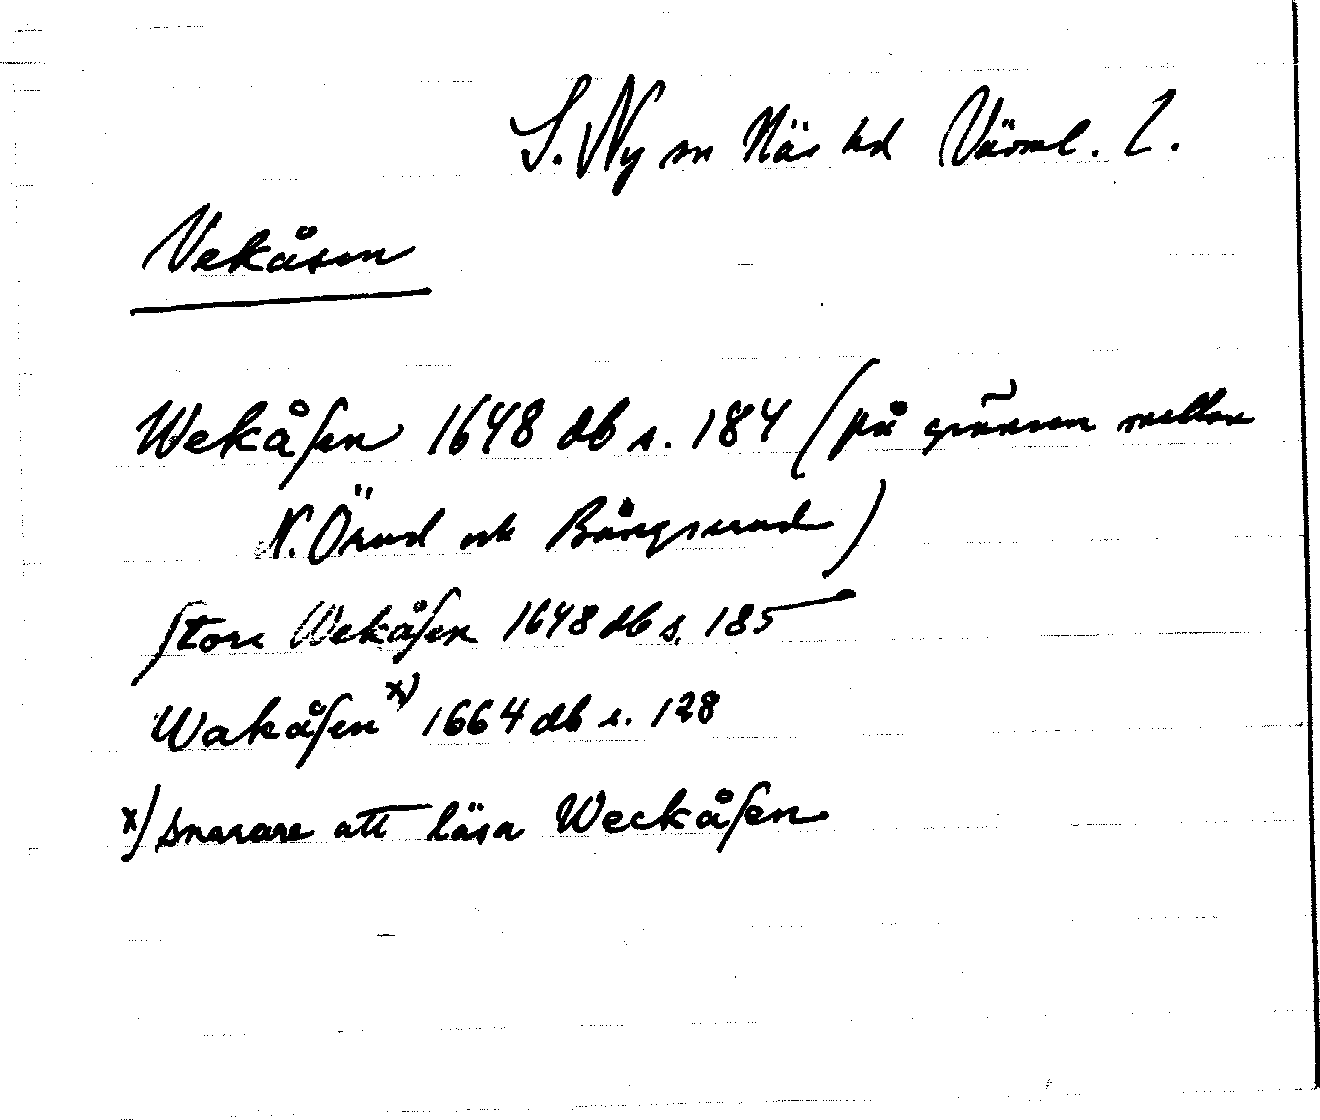 S. Ny sn Näs hd Värml. l.
Vekåsen
Wekåſen 1648 db s. 184 (på gränsen mellan
N. Örud och Bångsrud)
ſtore Wekåſen 1648 db s. 185
Wakåſen x) 1664 db s. 128
x) snarare att läsa Weckåſen